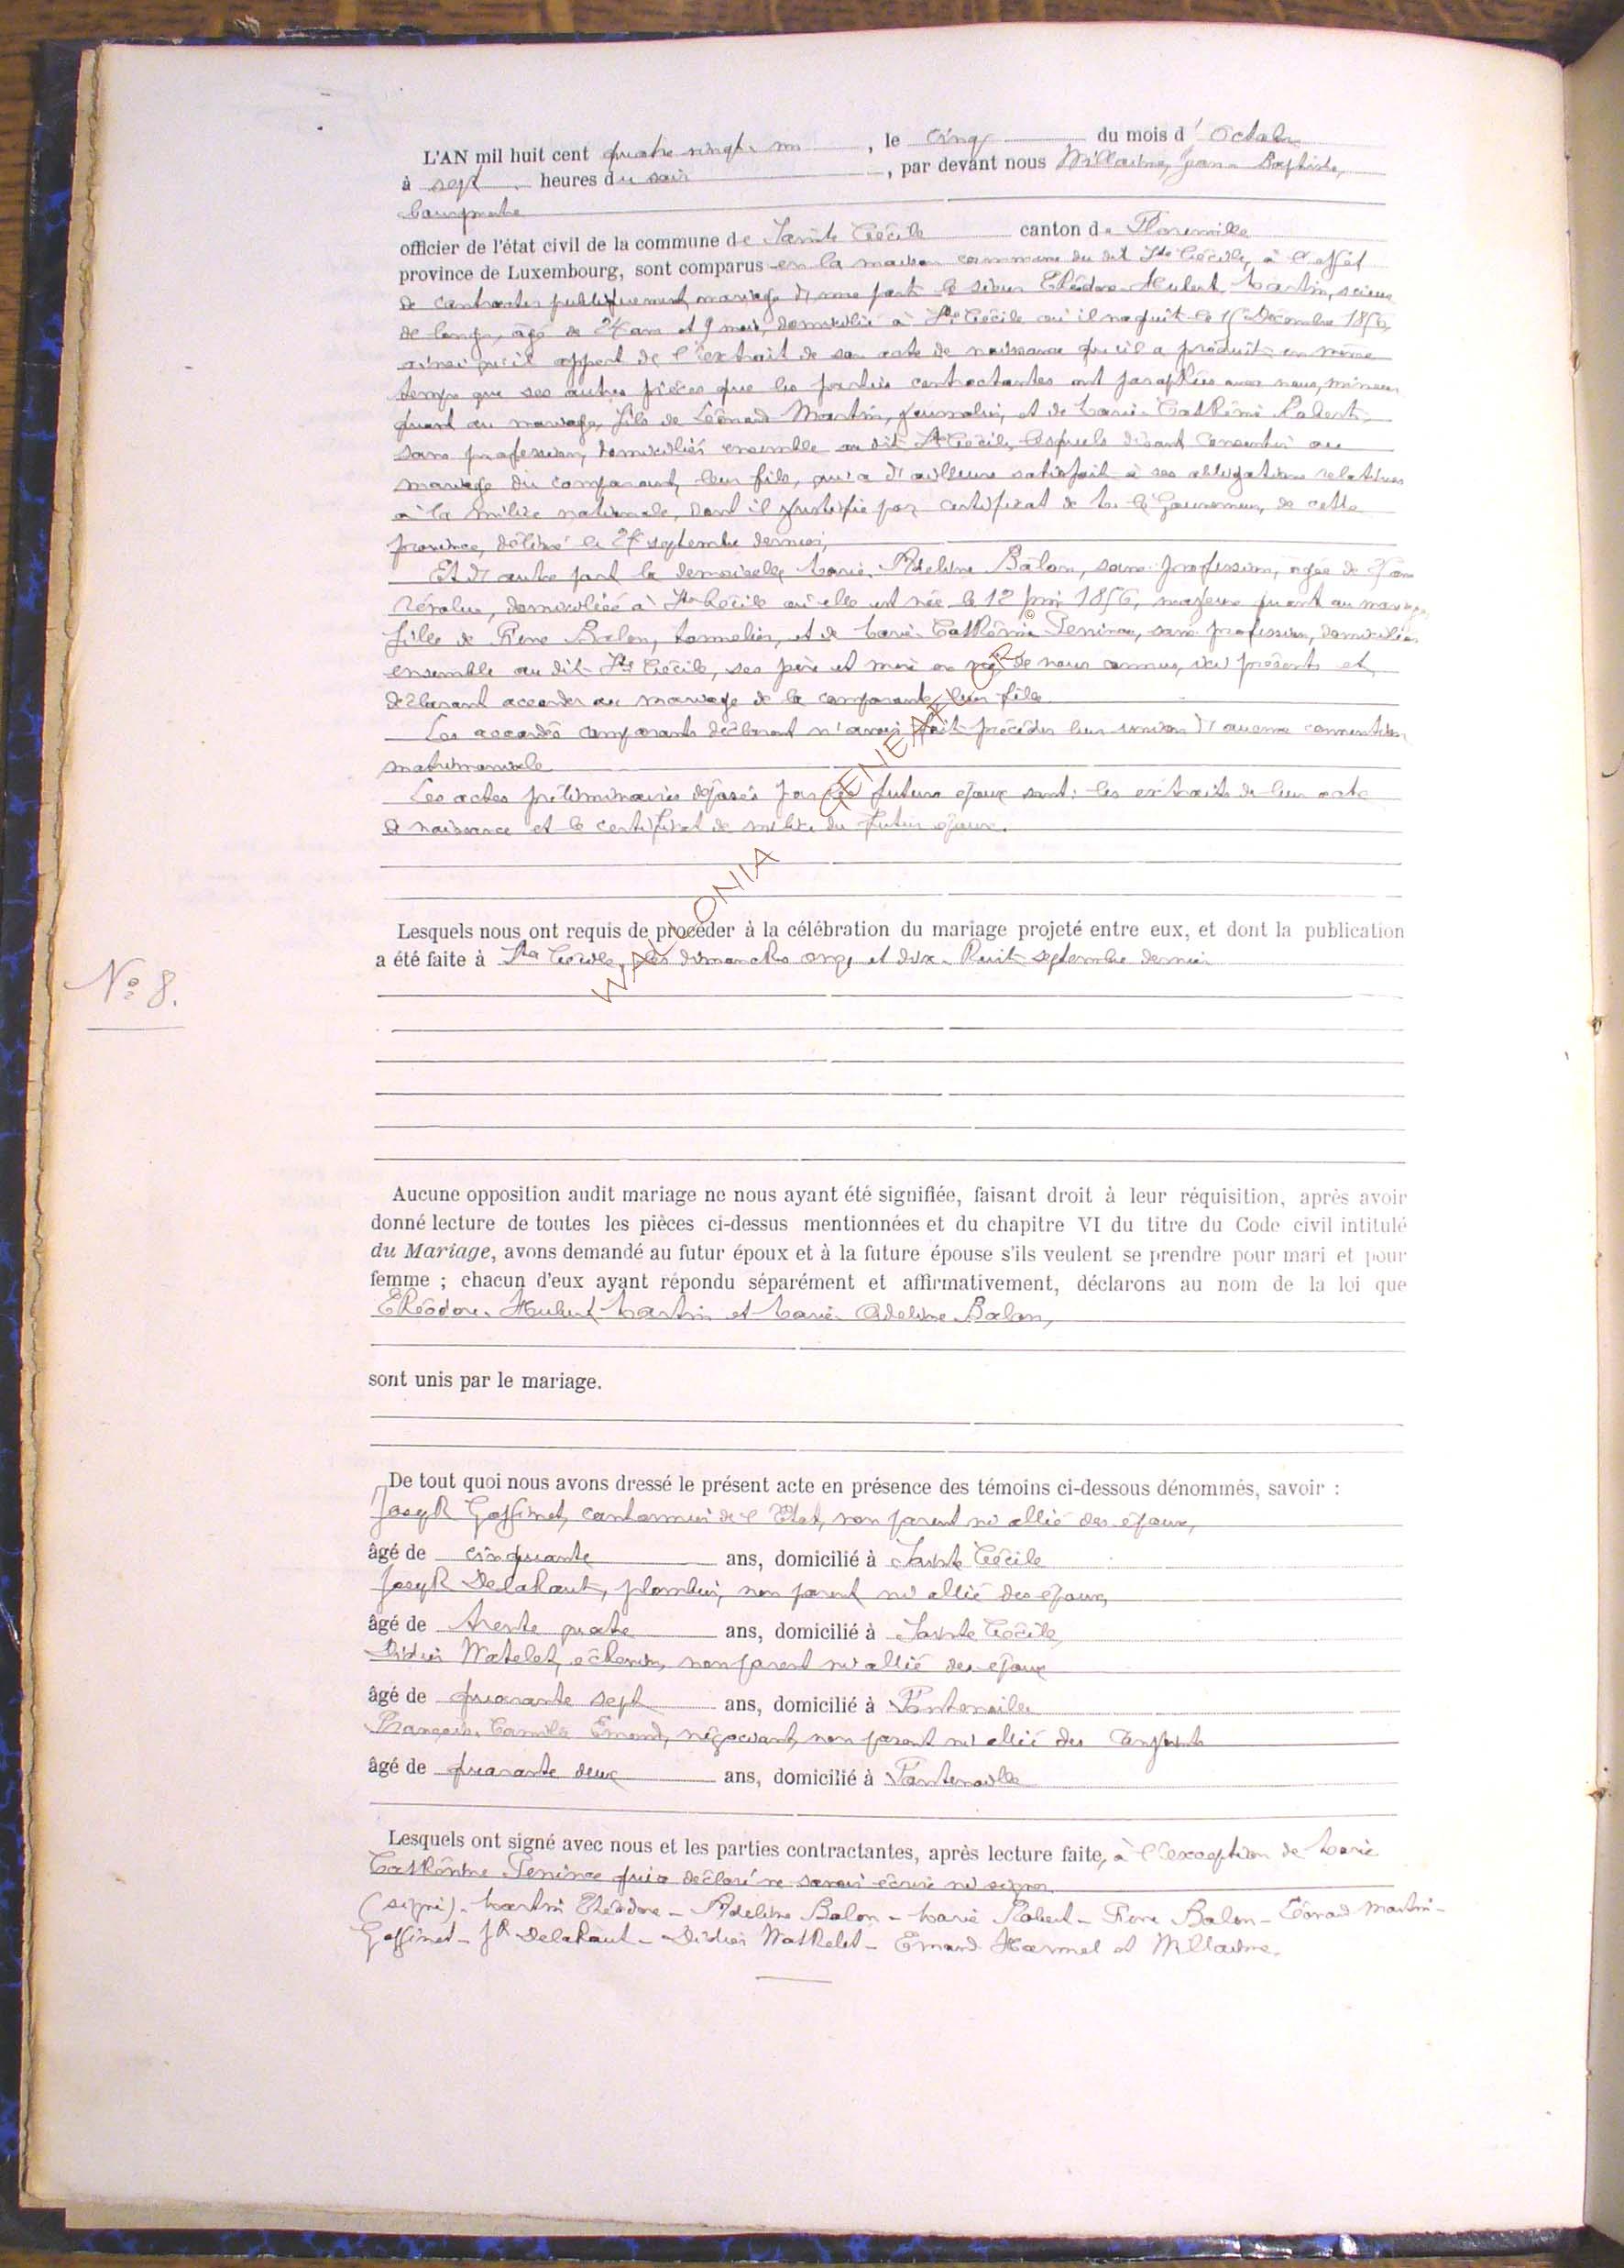 L'AN mil huit cent quatre vingt un, le cinq du mois d'Octobre
à sept heures du soir, par devant nous Willaime, Jean-Baptiste,
bourgmestre
officier de l'état civil de la commune de Sainte Cécile canton de Florenville
province de Luxembourg, sont comparus en la maison commune du dit Ste Cécile, à l'effet
de contracter publiquement mariage d'une part le sieur Théodore Hubert Martin, scieur
de long, âgé de 24 ans et 9 mois, domicilié à Ste Cécile où il naquit le Décembre 1856,
ainsi qu'il appert de l'extrait de son acte de naissance qu'il a produit en même
temps que ses autres pièces que les parties contractantes ont paraphées avec nous, mineur
quant au mariage, fils de Léonard Martin, journalier, et de Marie Cathérine Robert,
sans profession, domiciliés ensemble au dit Ste Cécile, lesquels disant consentir au
mariage du comparant, leur fils, qui a d'ailleurs satisfait à ses obligations relatives
à la milice nationale, dont il justifie par certificat de Mr le Gouverneur de cette
province, délivré le septembre dernier,
Et d'autre part la demoiselle Marie Adeline Balon, sans profession, âgée de ans
révolus, domiciliée à Ste Cécile où elle est née le 12 1856, majeure quant au mariage,
fille de Pierre Balon, tonnelier, et de Marie Cathérine Peninae, sans profession, domiciliés
ensemble au dit Ste Cécile, ses père et mère de nous connus, ici présents et
déclarant accorder au mariage de la comparante, leur fille.
Les accordés comparants déclarent n'avoir fait précéder leur union d'aucune convention
matrimoniale
Les actes préliminaires déposés par les futurs époux sont: les extraits de leur acte
de naissance et le certificat de milice du futur époux.
Lesquels nous ont requis de procéder à la célébration du mariage projeté entre eux, et dont la publication
a été faite à Ste Cécile, les dimanches onze et dix-huit septembre dernier
No 8.
Aucune opposition audit mariage ne nous ayant été signifiée, faisant droit à leur réquisition, après avoir
donné lecture de toutes les pièces ci-dessus mentionnées et du chapitre VI du titre du Code civil intitulé
du Mariage, avons demandé au futur époux et à la future épouse s'ils veulent se prendre pour mari et pour
femme ; chacun d'eux ayant répondu séparément et affirmativement, déclarons au nom de la loi que
Théodore Hubert Martin et Marie Adeline Balon,
sont unis par le mariage.
De tout quoi nous avons dressé le présent acte en présence des témoins ci-dessous dénommés, savoir :
Joseph Goffinet, cantonnier de l'Etat, non parent ni allié des époux,
âgé de cinquante ans, domicilié à Sainte Cécile
Joseph Delahaut, plombier, non parent ni allié des époux,
âgé de trente quatre ans, domicilié à Sainte Cécile,
Didier Watelet, échevin, non parent ni allié des époux
âgé de quarante sept ans, domicilié à Fontenoille
François Camille Emond, négociant, non parent ni allié des conjoints
âgé de quarante deux ans, domicilié à Fontenoille
Lesquels ont signé avec nous et les parties contractantes, après lecture faite, à l'exception de Marie
Cathérine Peninae qui a déclaré ne savoir écrire ni signer
(signé). Martin Théodore - Adeline Balon - Marie Robert - Pierre Balon - Léonard Martin -
Goffinet - Jh Delahaut - Didier Wathelet - Emond Harmel et Willaime.
© WALLONIA GENEALOGR